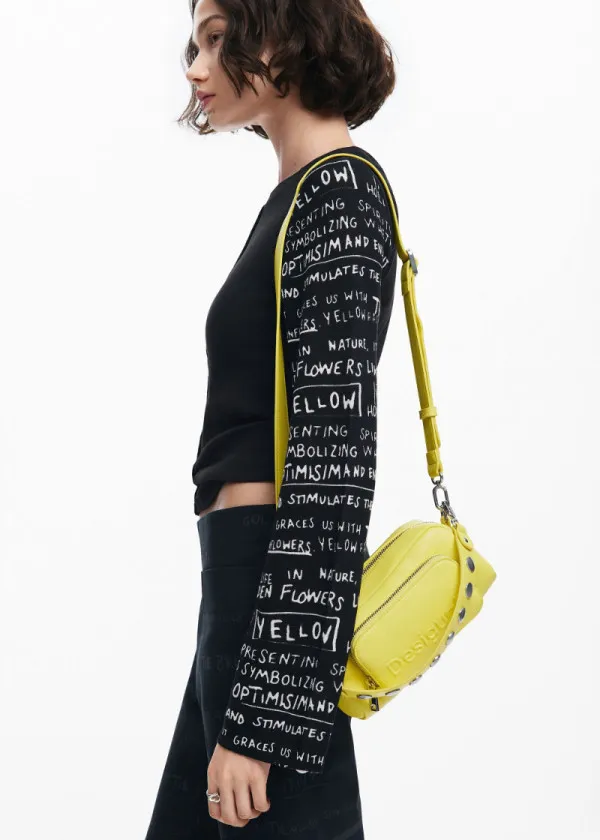 ELLOW
ESENTING SPIRI
SYMBOLIZING W
OPTIMISIM AND EN
AND STIMULATES THE
CES US WITH T
ERS. YELLOW F
IN NATURE, I
FLOWERS LI
ELLOW
SENTING SPI
MBOLIZING W
TIMISIM AND E
ND STIMULATES THE
GRACES US WITH T
LOWERS. YELLOW
LIFE IN NATURE,
EN FLOWERS L
YELLOW
PRESENTIN SP
SYMBOLIZING W
OPTIMISIM AND
AND STIMULATES T
T GRACES US WITH
Desigu